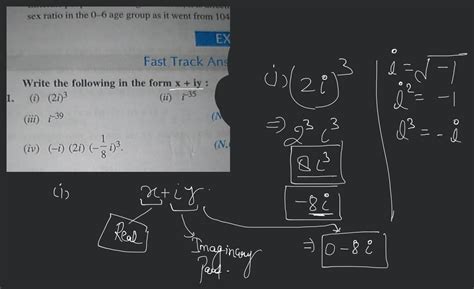 sex ratio in the 0–6 age group as it went from 104
EX
Fast Track Ans
Write the following in the form x + iy :
1. (i) (2i)³ (ii) i⁻³⁵
(iii) i⁻³⁹ (N.
(iv) (–i) (2i) (–1/8 i)³. (N.
(i) (2i)³
⇒ 2³ i³
8i³
-8i
i = √-1
i² = -1
i³ = -i
(i) x + iy
Real
Imaginary Part.
⇒ 0-8i